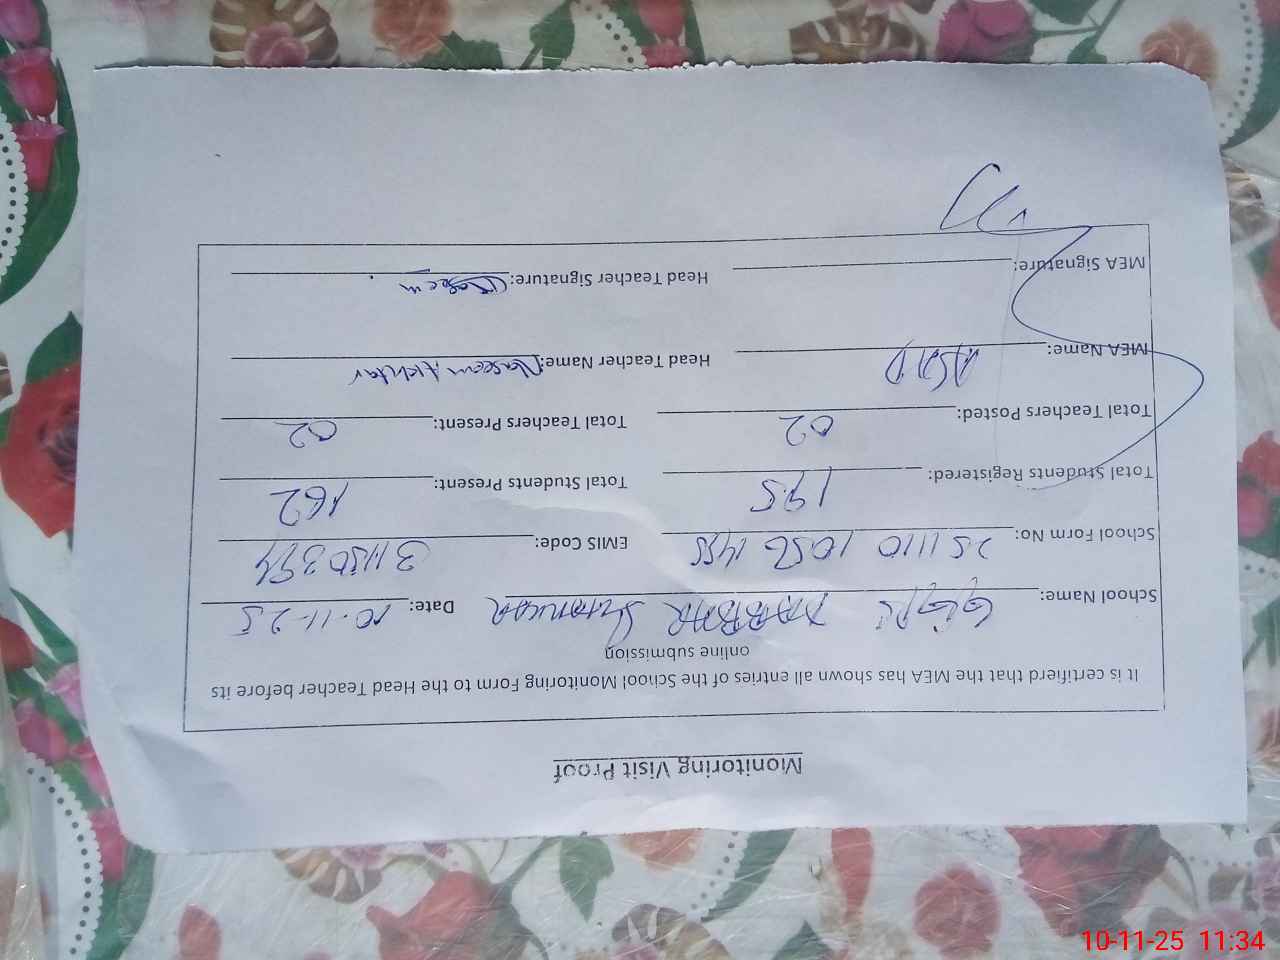 Monitoring Visit Proof
It is certifierd that the MEA has shown all entries of the School Monitoring Form to the Head Teacher before its
online submission
School Name: GGPS DARBAR Date: 10-11-25
School Form No: 251110 1056 1455 EMIS Code:
Total Students Registered: 195 Total Students Present: 162
Total Teachers Posted: 02 Total Teachers Present: 02
MEA Name: ASAD Head Teacher Name: Naseem Akhtar
MEA Signature: Head Teacher Signature: Naseem
10-11-25 11:34